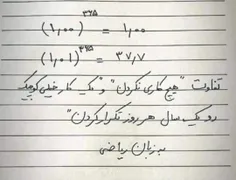 (۱٫۰۰)^۳۶۵ = ۱٫۰۰
(۱٫۰۱)^۳۶۵ = ۳۷٫۷
تفاوت "هیچ کاری نکردن" و "یک کار خیلی کوچیک
رو یک سال هر روز تکرار کردن"
به زبان ریاضی